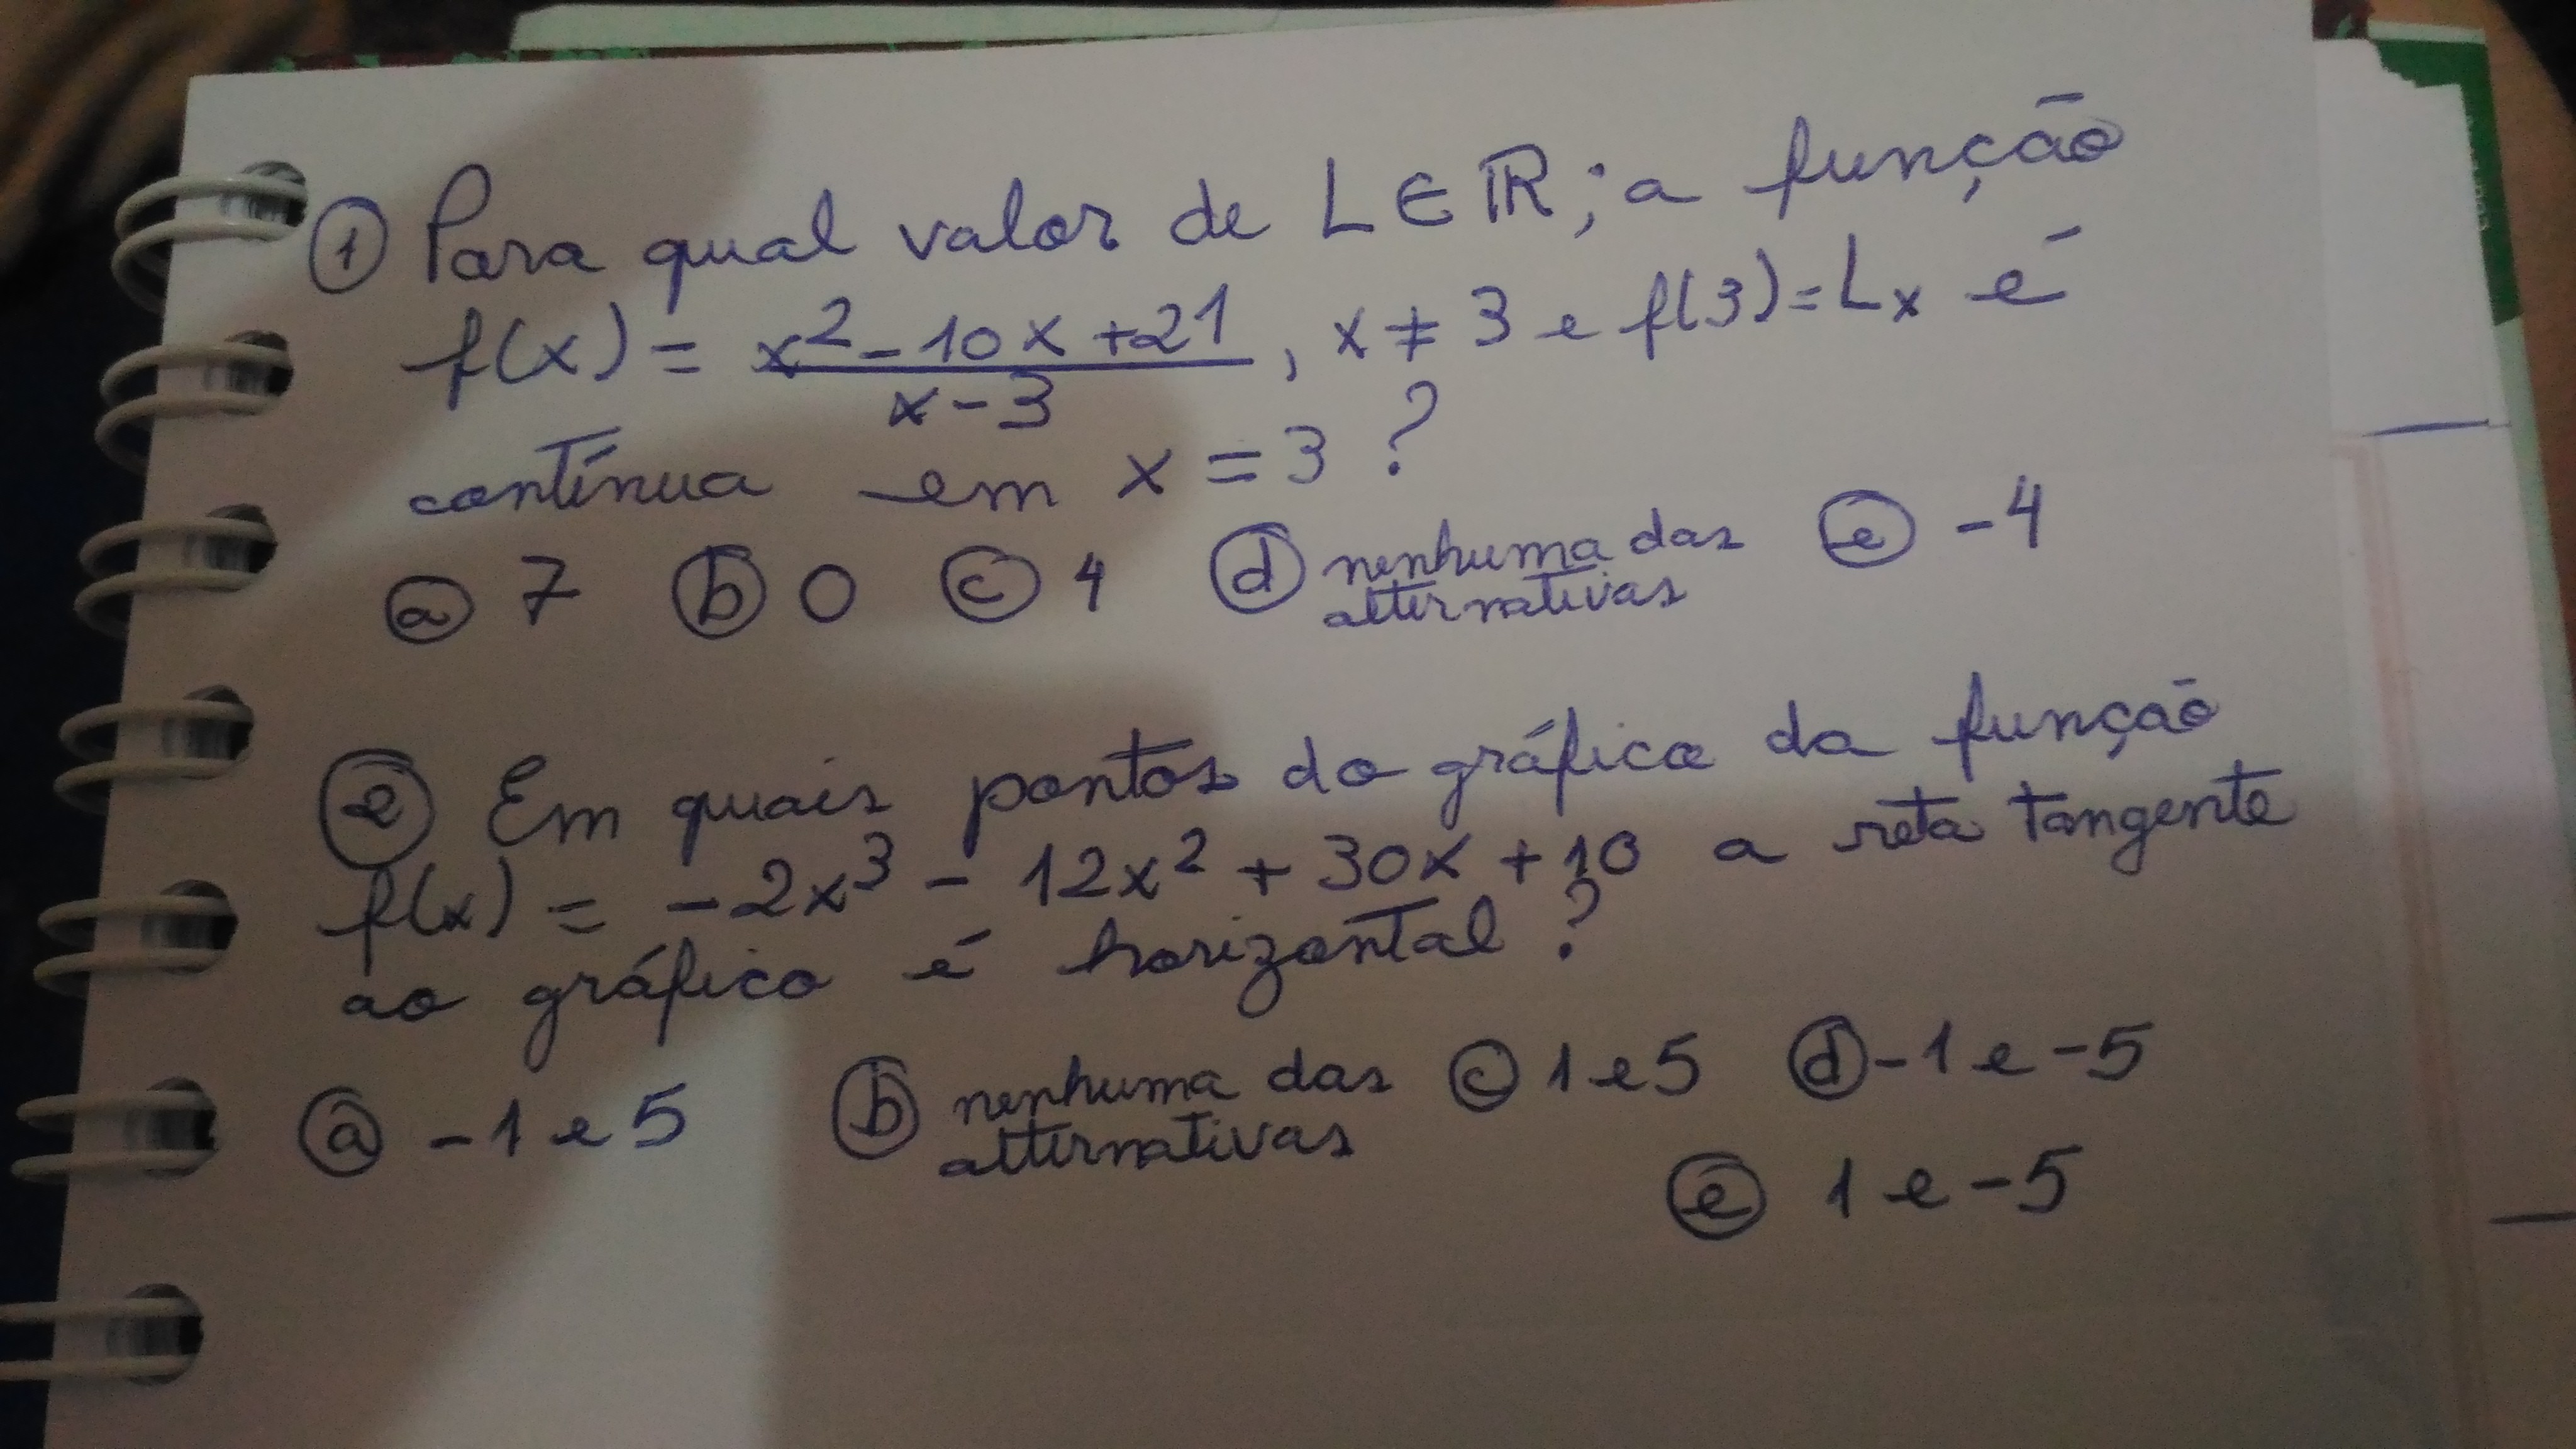 ① Para qual valor de L ∈ ℝ; a função
f(x) = x² - 10x + 21 / x - 3 , x ≠ 3 e f(3) = Lx é
contínua em x = 3 ?
ⓐ 7 ⓑ 0 ⓒ 4 ⓓ nenhuma das alternativas ⓔ -4
② Em quais pontos do gráfico da função
f(x) = -2x³ - 12x² + 30x + 10 a reta tangente
ao gráfico é horizontal ?
ⓐ -1 e 5 ⓑ nenhuma das alternativas ⓒ 1 e 5 ⓓ -1 e -5
ⓔ 1 e -5